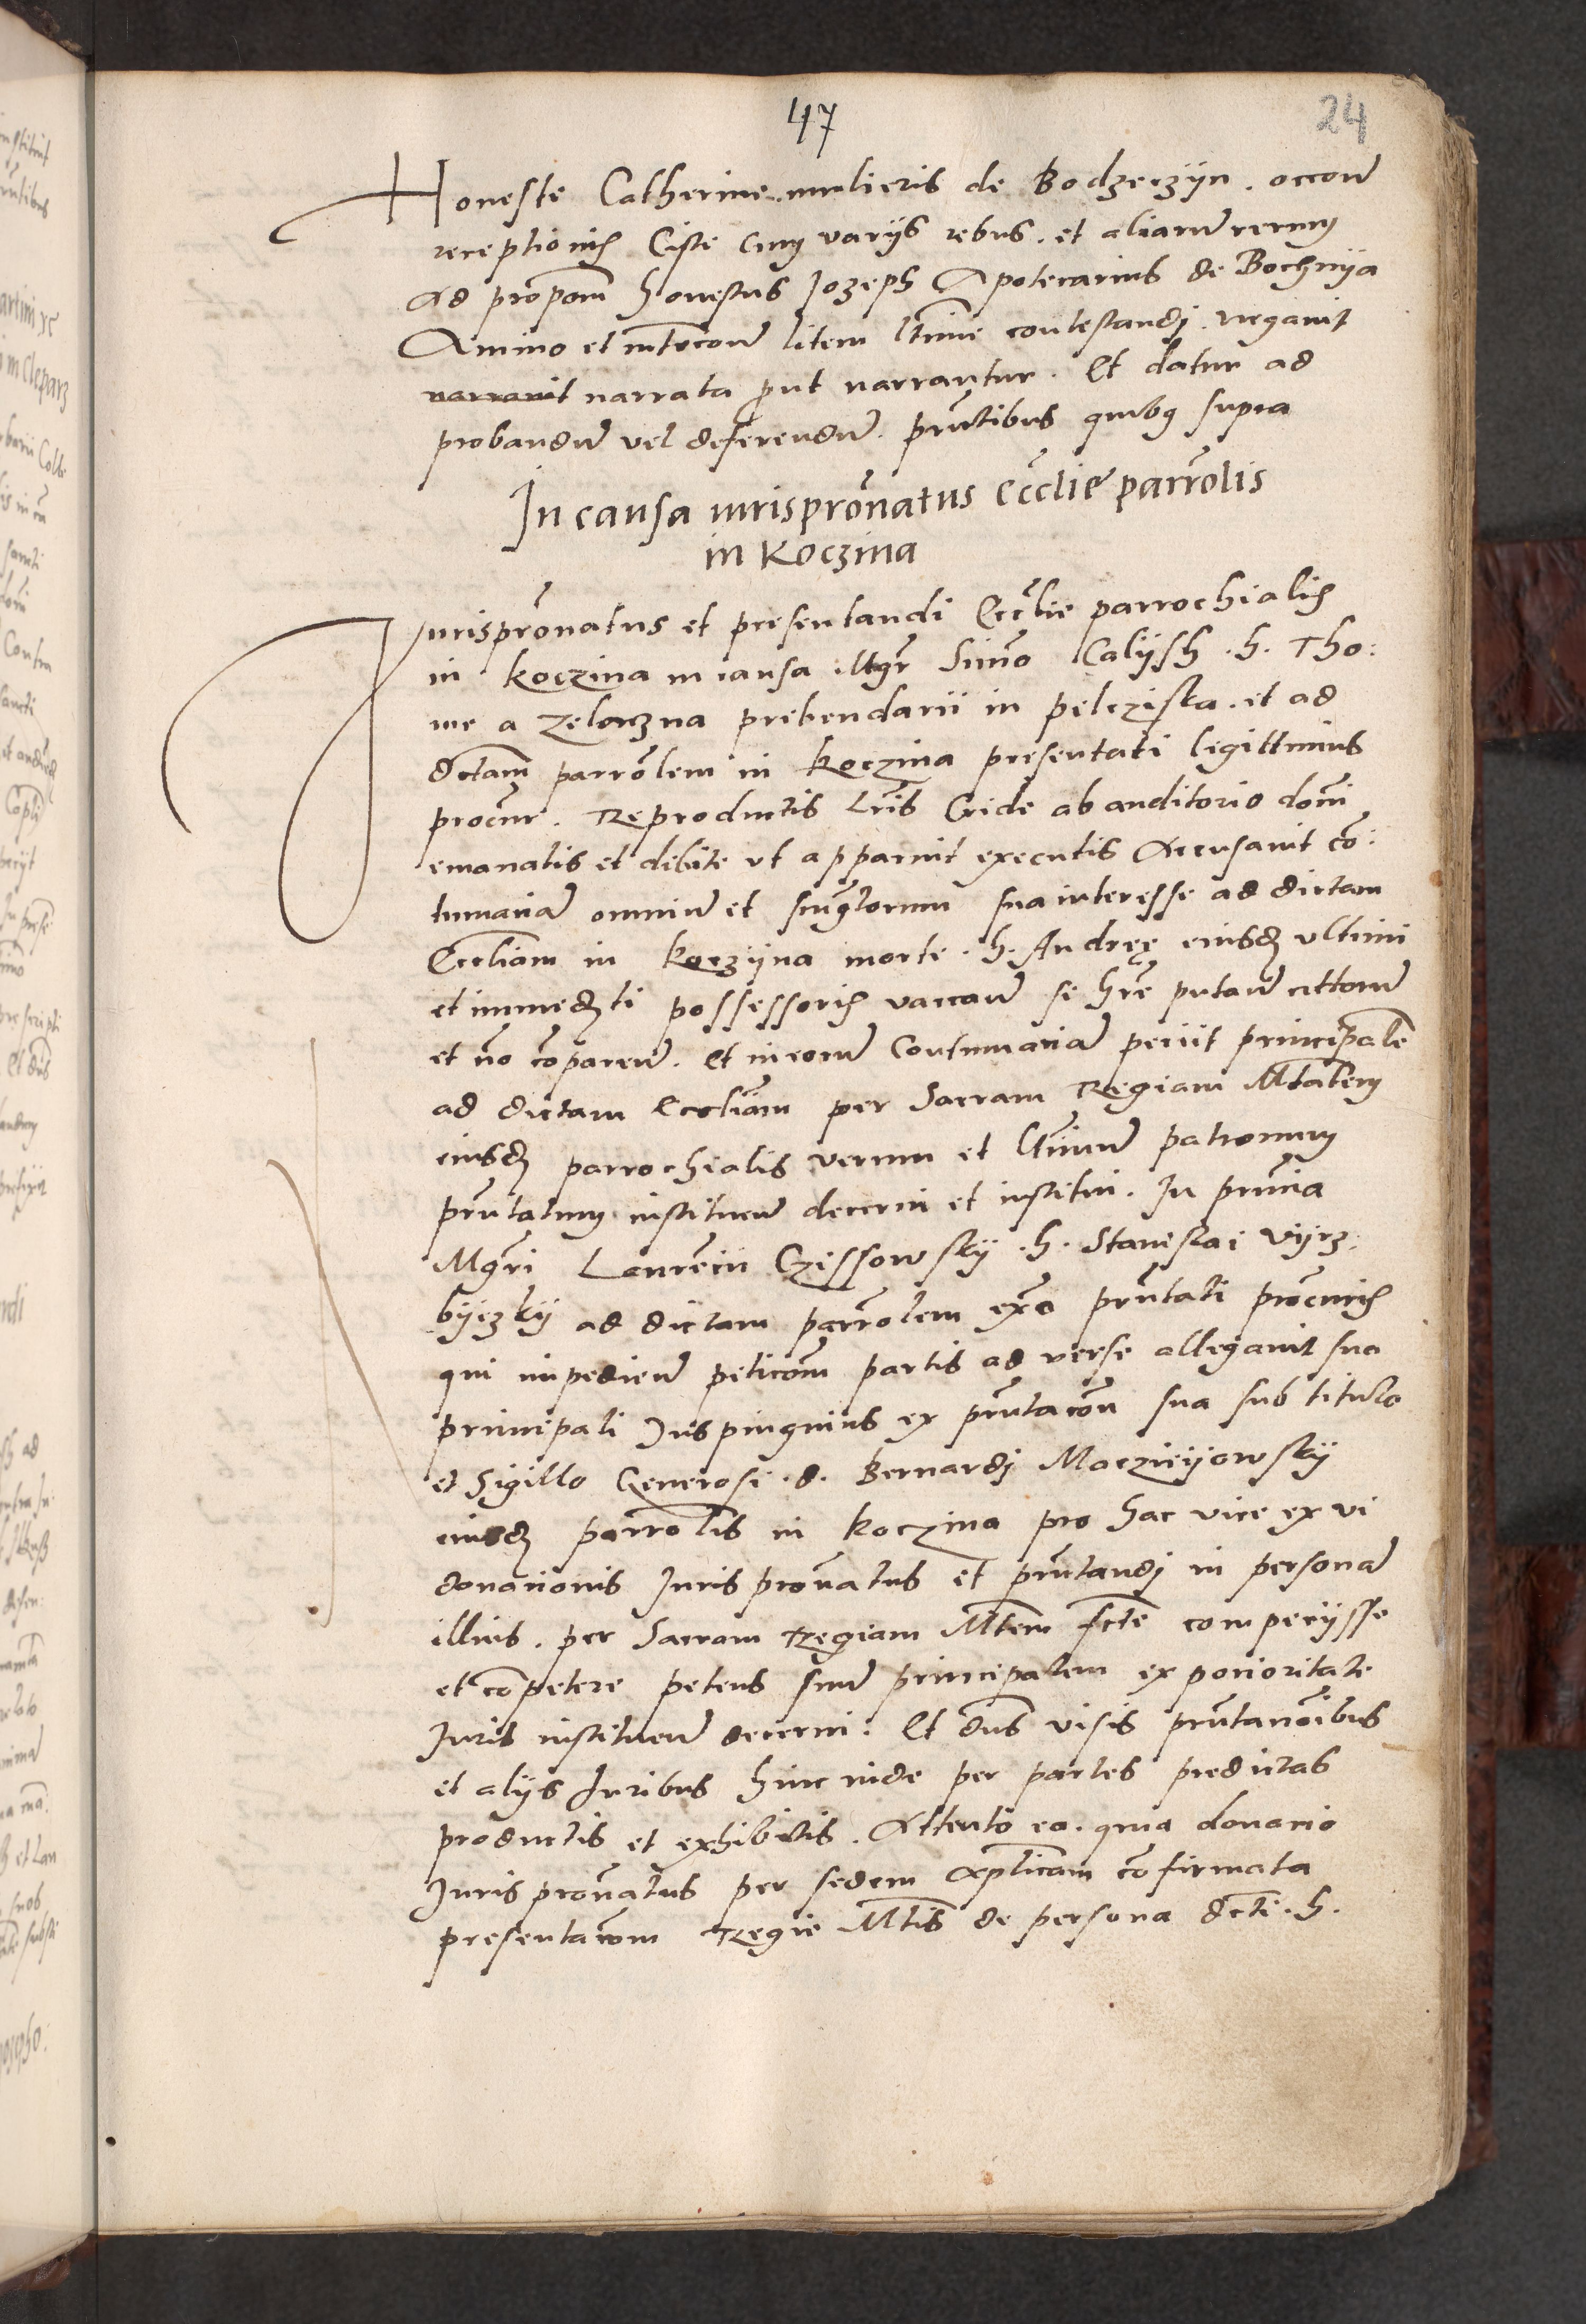 47
24
Honeste Catherine mulieris de Bodzeczijn . occoně
receptionis Ciste cum varijs rebus . et aliarum rerum
ad propom honestus Jozeph Apotecarius de Bochnija
Animo et intēcone litem ltime contestandj . negavit
narravit narrata put narrantur . Et datur ad
probandum vel deferendum . prntibus quibus supra
In causa iurispronatus eccliē parrolis
in Koczina
Jurispronatus et presentandi Ecclie parrochialis
in koczina in causa Mgr Simo Calijsh . h . Tho:
me a zelaczna prebendarii in pelczista . et ad
dctam parrolem in koczina presentati legittimus
procur . Reproductis lris Cride ab auditorio domi
emanatis et debite ut apparuit executis accusavit co:
tumaciam omnium et singlorum sua interesse ad dictam
Eccliam in koczijna morte . h . Andreę eiusdem ultimi
et immedti possessoris vacan se hre putan cittorum
et no comparen . Et in eorum contumaciam peciit principale
ad dictam Eccliam per Sacram Regiam Mtatem
eiusdem parrochialis verum et ltimum patronum
prntatum instituen decerni et institui . In prncia
Mgri Laurencii Czessowskij . h . Stanislai vijrz:
bijczkij ad dictam parrolem exo prntati procuris
qui impedien peticom partis adverse allegavit suo
principali Jus pinguius ex prntacone sua sub titulo
et Sigillo Generosi . d . Bernardj Macziejowskij
eiusdem parrolis in koczina pro hac vice ex vi
donacionis Juris pronatus et prntandj in personam
illius . per Sacram Regiam Mtem fcte competijsse
et competere petens suum principalem ex pocioritate
Juris instituen decerni . Et dns visis prntanoibus
et alijs Juribus hinc inde per partes predictas
productis et exhibitis . Attento eo . quia donacio
Juris pronatus per sedem aplicam confirmata
presentacom Regie Mtis de persona dcti . h .